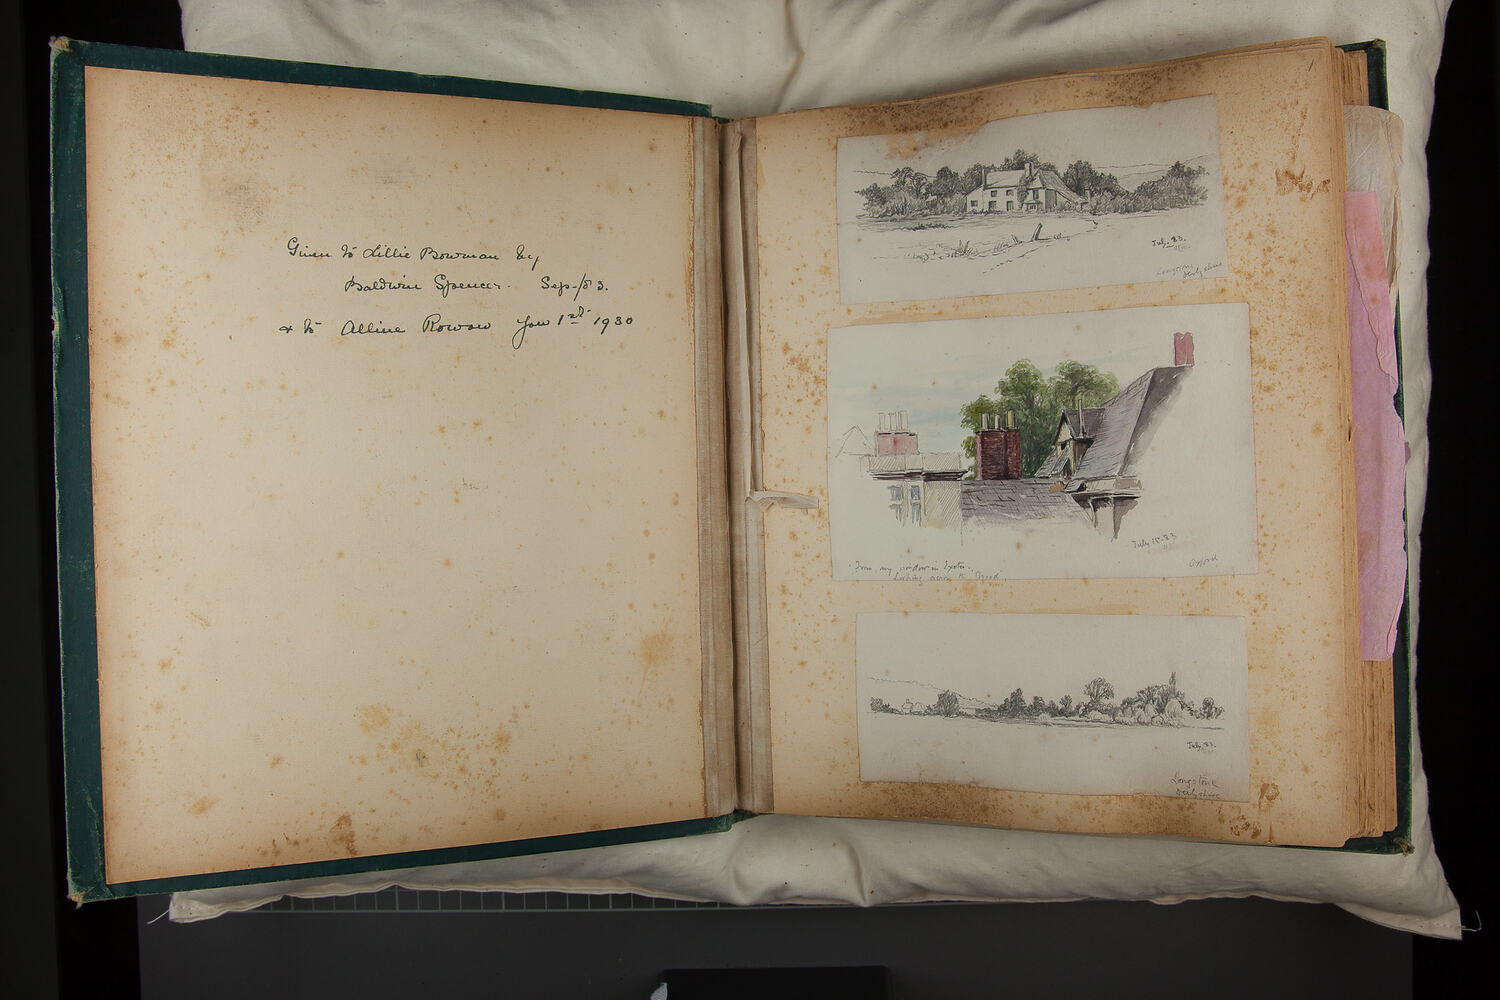 Given to Lillie Bowman by
Baldwin Spencer. Sep/83.
& to Alline Rowan Jan 1st 1930
July. 83.
Longstone
Derbyshire
July 15. 83
Oxford
From my window in Exeter.
Looking across the
July. 83.
Longstone
Derbyshire